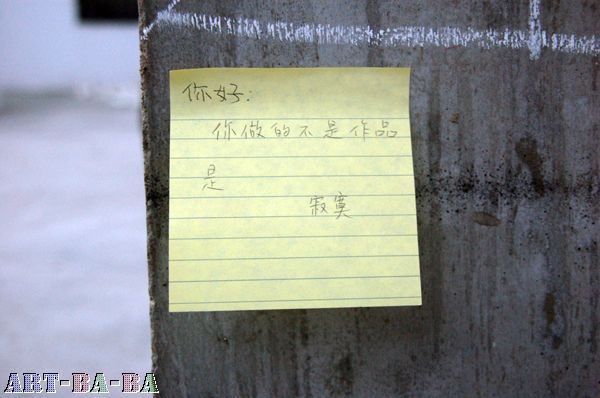 你好:
你做的不是作品
是
寂寞
ART-BA-BA